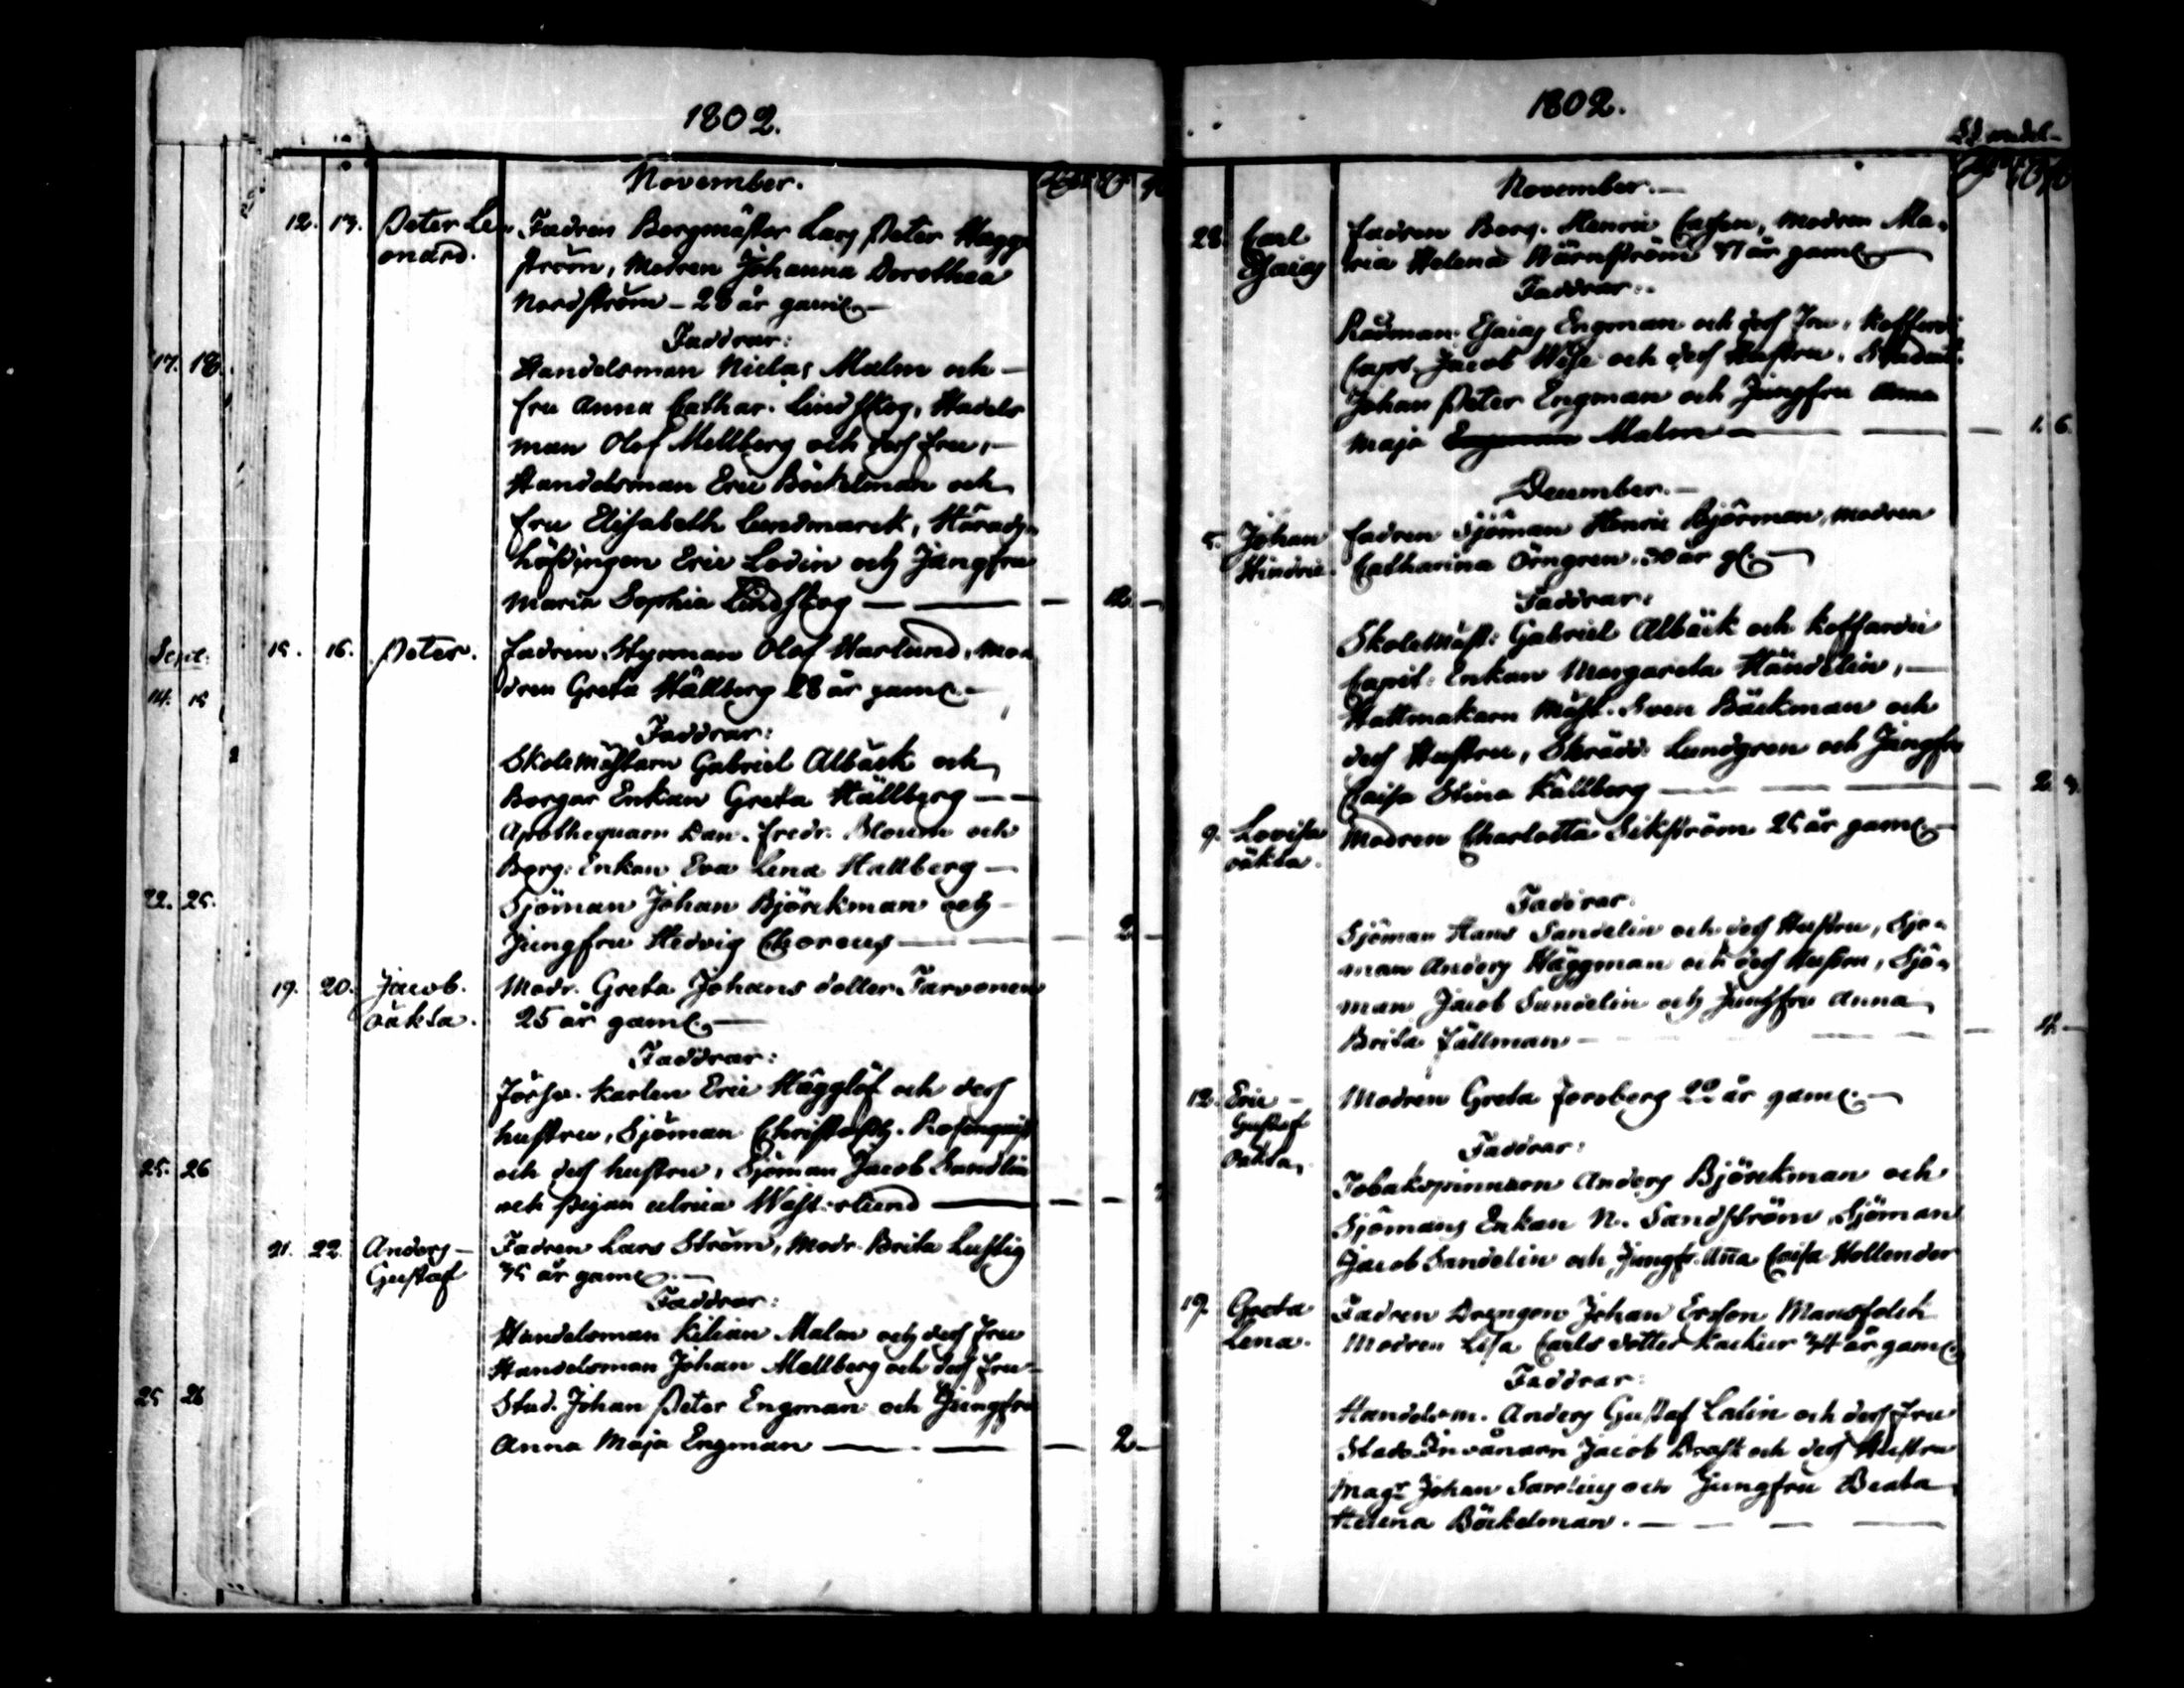 1802.
November.
12. 13. Peter Le- Fadren Borgmäster Lars Peter Hägg-
onard. ström, Modren Johanna Dorothea
Nordström - 28 år gamel.
Faddrar:
Handelsman Niclas Malm och
fru Anna Cathar. Lindskog, Hadels
man Olof Mellberg och dess fru,
Handelsman Eric Böckelman och
fru Elisabeth Lundmarck, Härads-
höfdingen Eric Lodin och Jungfru
Maria Sophia Lindskog 12.
15. 16. Peter. Fadren Styrman Olof Harlund, Mo-
dren Greta Hällberg 28 år gamel.
Faddrar:
Skolemästarn Gabriel Albäck och
Borgar Enkan Greta Hällberg
Apothequarn Dan. Fredr. Bloum och
Borg: Enkan Eva Lena Hallberg
Sjöman Johan Björckman och
Jungfru Hedvig Choreus 2
19. 20. Jacob. Modr. Greta Johans dotter Tarvonen
oäkta. 25 år gamel.
Faddrar:
Karlen Eric Hägglöf och dess
hustru, Sjöman Rosenquist
och dess hustru, Sjöman Jacob Sandlin
och pigan Ulrica Wästerlund
21. 22. Anders Fadren Lars Ström, Modr. Brita Lustig
Gustaf 35 år gamel.
Faddrar:
Handelsman Kilian Malm och dess fru
Handelsman Johan Mellberg och dess fru
Stud. Johan Peter Engman och Jungfru
Anna Maja Engman 2
17. 18.
Sept:
14. 15
22. 25.
25. 26
25 26
1802.
November.
28. Carl Fadren Borg. Henric Cajsen, Modren Ma-
Esaias ria Helena Wärnström 37 år gamel
Faddrar:
Rådman Esaias Engman och dess Fru, Koffardi
Capt. Jacob och dess Hustru, Student
Johan Peter Engman och Jungfru Anna
Maja Engman Malm 1. 6.
December.
5. Johan Fadren Sjöman Henric Björman, Modren
Hindric. Catharina Örngren, 30 år gl.
Faddrar:
Skolemäst: Gabriel Albäck och Koffardie
Capit: Enkan Margareta Händelin,
Hattmakarn Mäst. Sven Bäckman och
dess Hustru, Skrädd: Lundgren och Jungfru
Caisa Stina Källberg 2. 3.
9. Lovisa Modren Charlotta Sikström 25 år gamel
oäkta.
Faddrar.
Sjöman Hans Sandelin och dess Hustru, Sjö-
man Anders Häggman och dess Hustru, Sjö-
man Jacob Sandelin och Jungfru Anna
Brita Fällman 4.
12. Eric Modren Greta Forsberg 22 år gamel.
Gustaf
oäkta. Faddrar:
Tobakspinnarn Anders Björckman och
Sjömans Enkan N. Sandström, Sjöman
Jacob Sandelin och Jungfr. Ana Caisa Hollender
19. Greta Fadren Drengen Johan Ersson Mansfolch
Lena. Modren Lisa Carls dotter 34 år gamel
Faddrar:
Handelsm. Anders Gustaf Lalin och dess Fru
Stads Invånarn Jacob Brask och dess Hustru
Magr Johan och Jungfru Beata
Helena Böckelman.